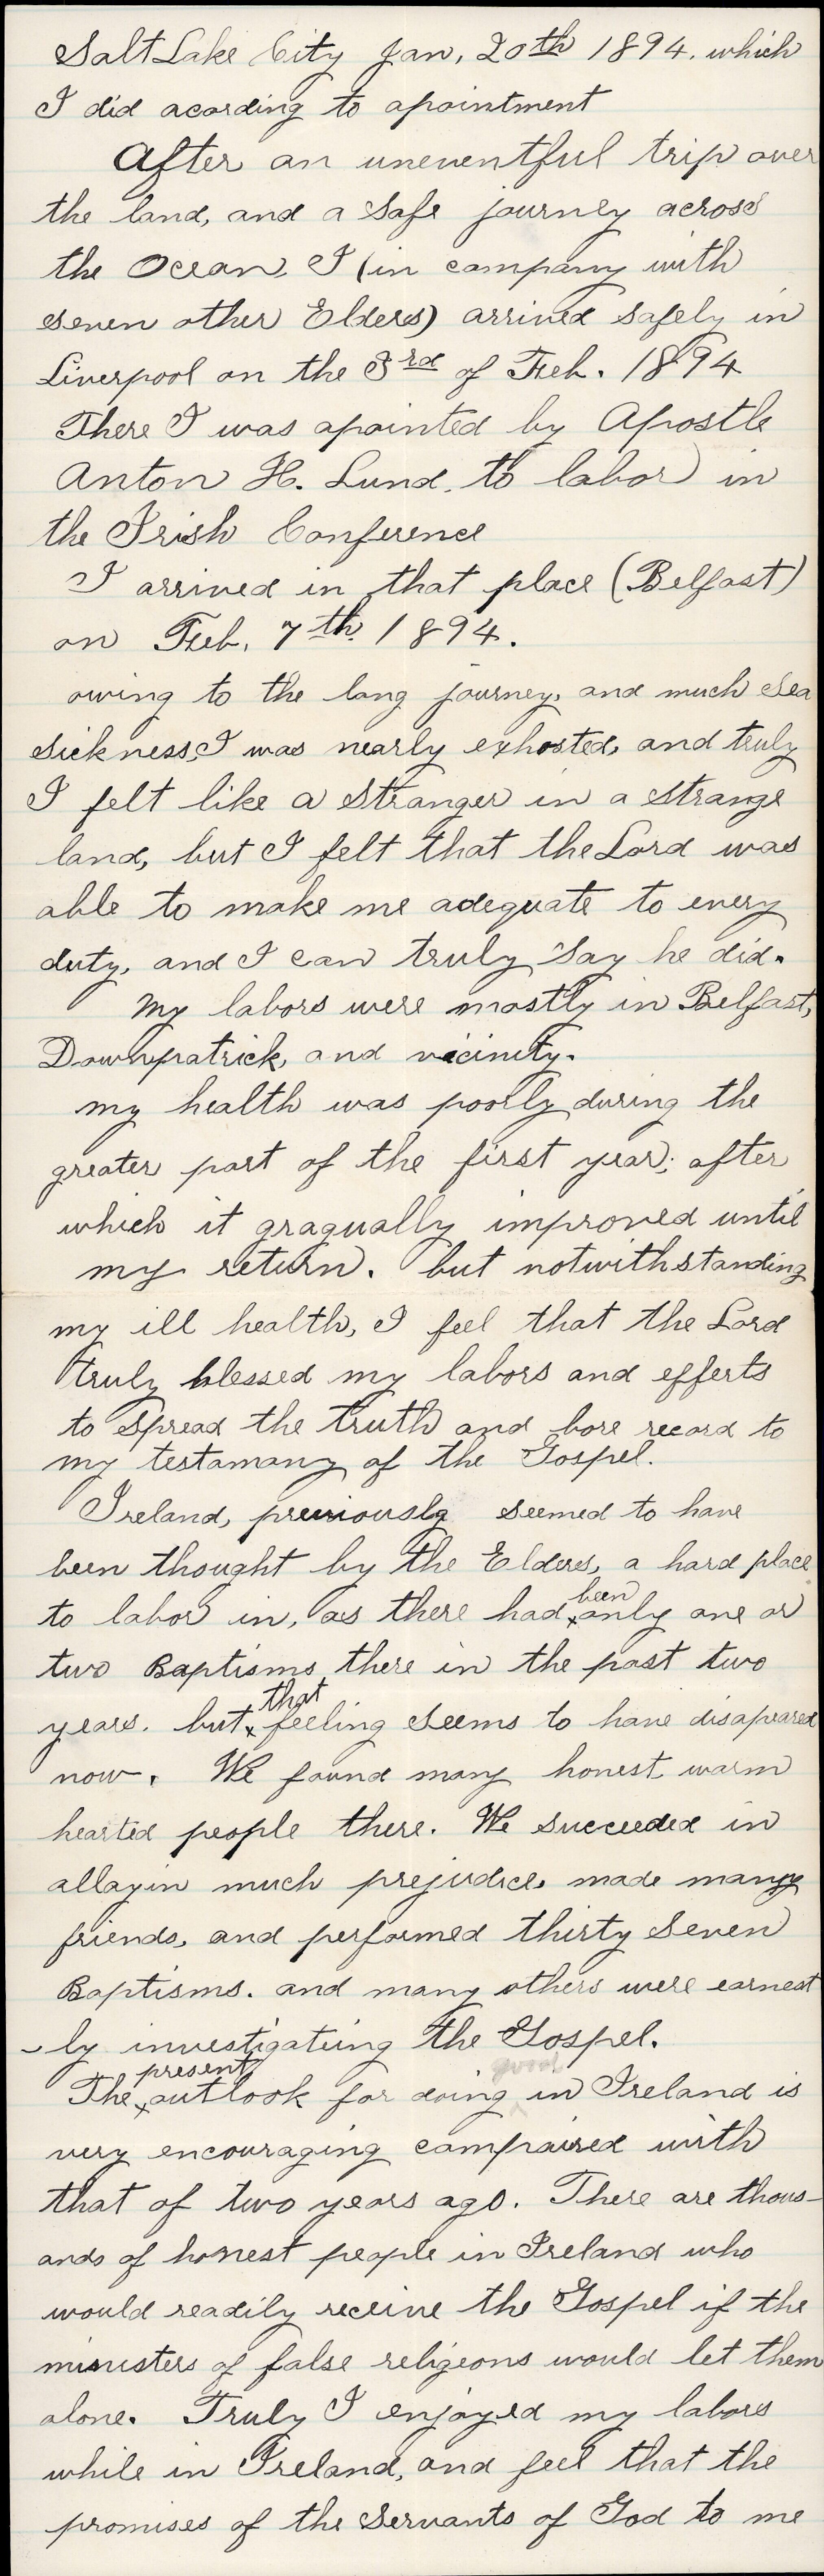 Salt Lake City Jan, 20th 1894. which
I did acording to apointment
After an uneventful trip over
the land, and a safe journey across
the Ocean, I (in company with
seven other Elders) arrived safely in
Liverpool on the 3rd of Feb. 1894
There I was apointed by Apostle
Anton H. Lund, to labor in
the Irish Conference
I arrived in that place (Belfast)
on Feb, 7th 1894.
owing to the long journey, and much sea
sickness, I was nearly exhosted, and truly
I felt like a stranger in a strange
land, but I felt that the Lord was
able to make me adequate to every
duty, and I can truly say he did.
My labors were mostly in Belfast,
Downpatrick, and vicinity.
my health was poorly during the
greater part of the first year; after
which it gragually improved until
my return. but notwithstanding
my ill health, I feel that the Lord
truly blessed my labors and efferts
to spread the truth and bore record to
my testamony of the Gospel.
Ireland, previously seemed to have
been thought by the Elders, a hard place
to labor in, as there had been only one or
two Baptisms there in the past two
years. but that feeling seems to have disapeared
now. We found many honest warm
hearted people there. We succeeded in
allayin much prejudice, made many
friends, and performed thirty seven
Baptisms. and many others were earnest
-ly investigating the Gospel.
The present outlook for doing good in Ireland is
very encouraging compaired with
that of two years ago. There are thous-
ands of honest people in Ireland who
would readily receive the Gospel if the
ministers of false religeons would let them
alone. Truly I enjoyed my labors
while in Ireland, and feel that the
promises of the Servants of God to me